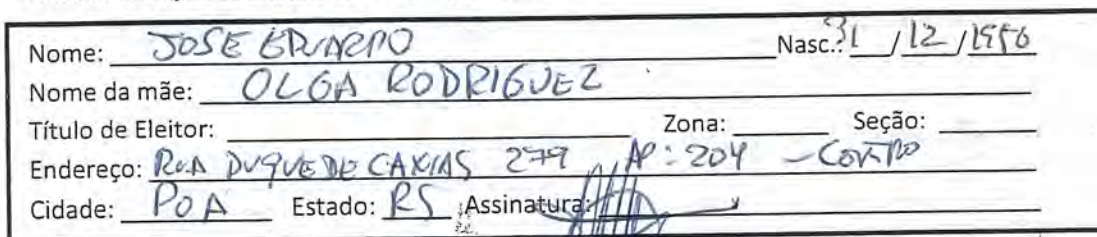 Nome: JOSE EDUARDO Nasc.: 31/12/1956
Nome da mãe: OLGA RODRIGUEZ
Título de Eleitor: Zona: Seção:
Endereço: RUA DUQUE DE CAXIAS 279 AP: 204 - CENTRO
Cidade: POA Estado: RS Assinatura: